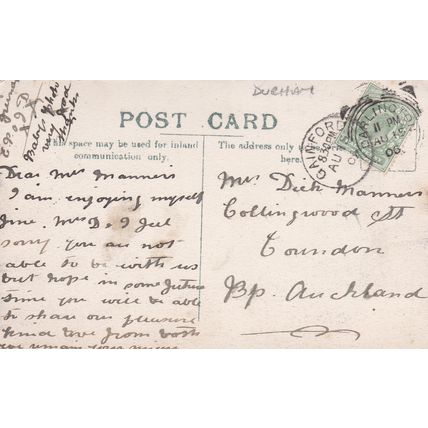 DURHAM
POST CARD
This space may be used for inland communication only.
The address only to be written here.
GAINFORD
8.30 PM
AU
DARLINGTON
11 PM
AU 15
06
Baby photo
very good
thanks
Dear Mrs Manners
I am enjoying myself
fine. Mrs D. I feel
sorry you are not
able to be with us
but hope in some future
time you will be able
to share our pleasure
kind love from both
Mrs Dick Manners
Collingwood St
Coundon
Bp. Auckland